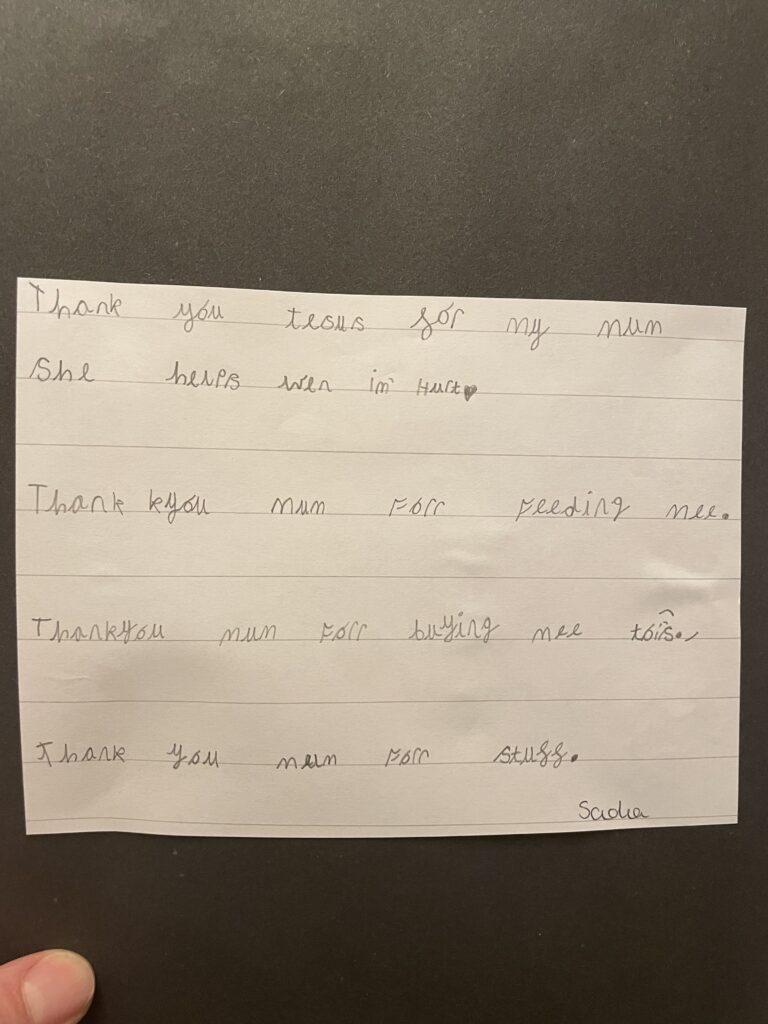 Thank you tesus for my mum
She helps wen im Hurt♥
Thank kyou mum Forr Feeding mee.
Thankyou mum Forr buying mee tois.
Thank you mum Forr stuff.
Sadia